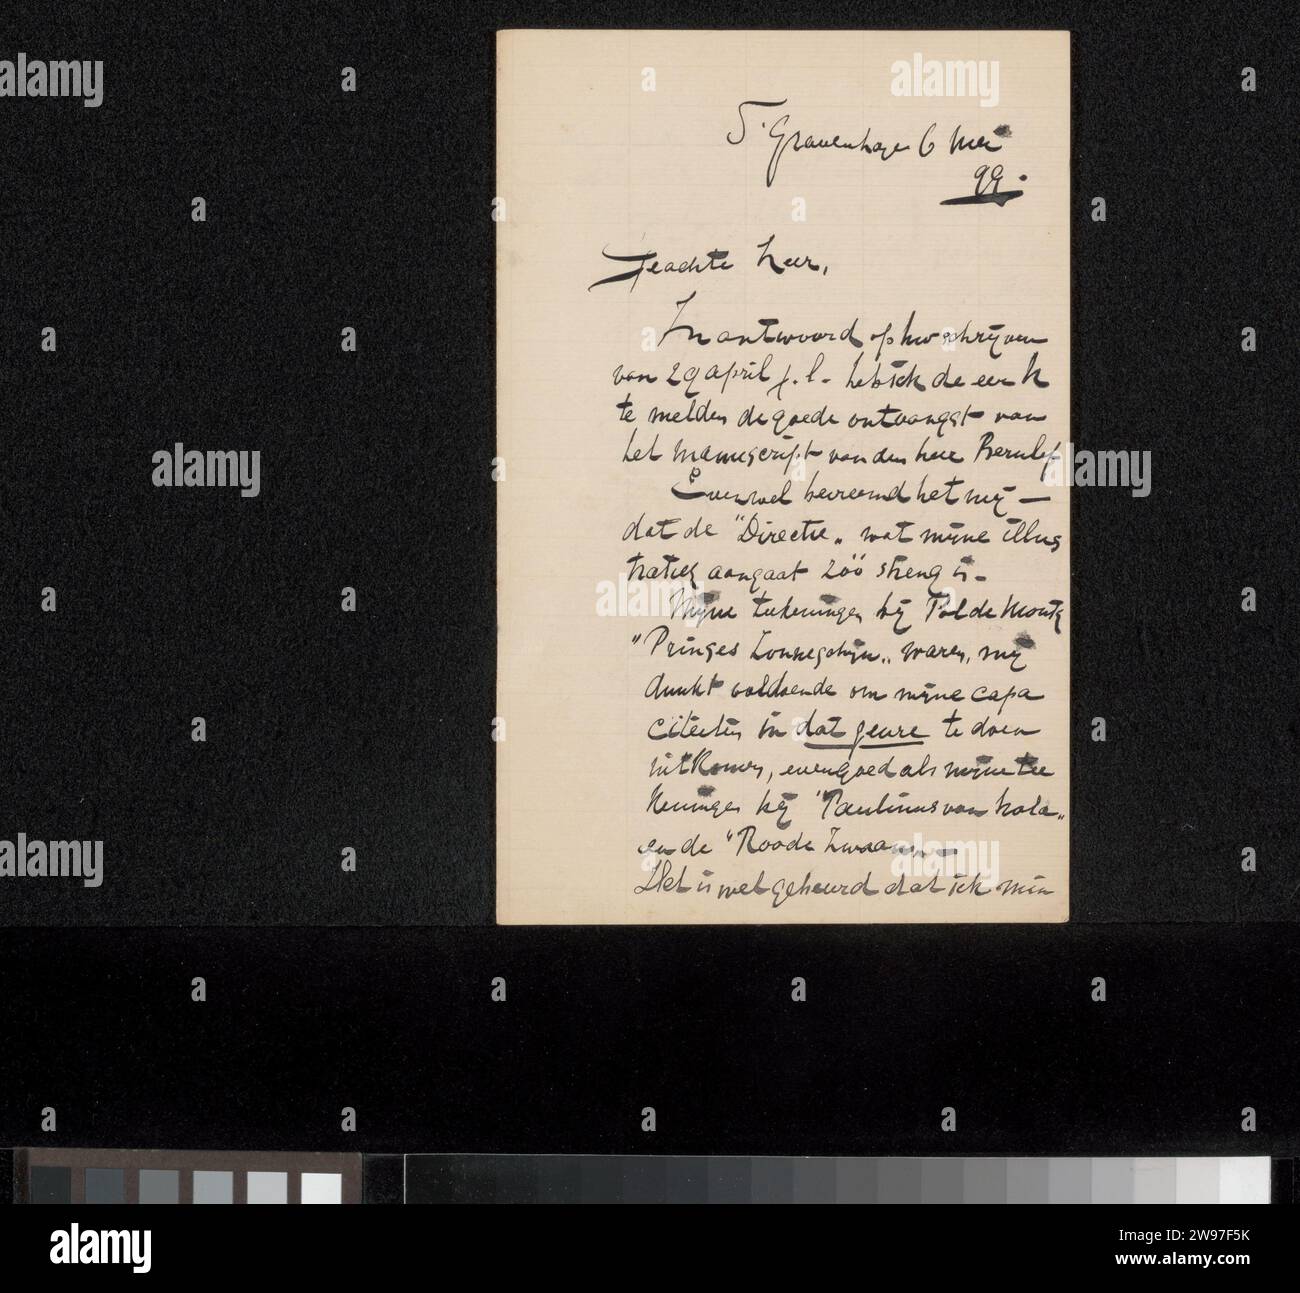 S'Gravenhage 6 Mei
99.
Geachte Heer,
In antwoord op Uw schrijven
van 29 april j.l. heb ick de eer U
te melden de goede ontvangst van
het manuscript van den heer Bernlef
Evenwel bevreemd het mij —
dat de "Directie" wat mijne illus
traties aangaat zóó streng is -
Mijne teekeningen bij Pol de Mont's
"Prinses Zonneschijn" waren, mij
dunkt voldoende om mijne capa
citeiten in dat genre te doen
uitkomen, evengoed als mijne tee
keningen bij "Paulinus van Nola"
en de "Roode Zwaan" —
Het is wel gebeurd dat ick mijn
alamy
alamy
Image ID: 2W97F5K
www.alamy.com